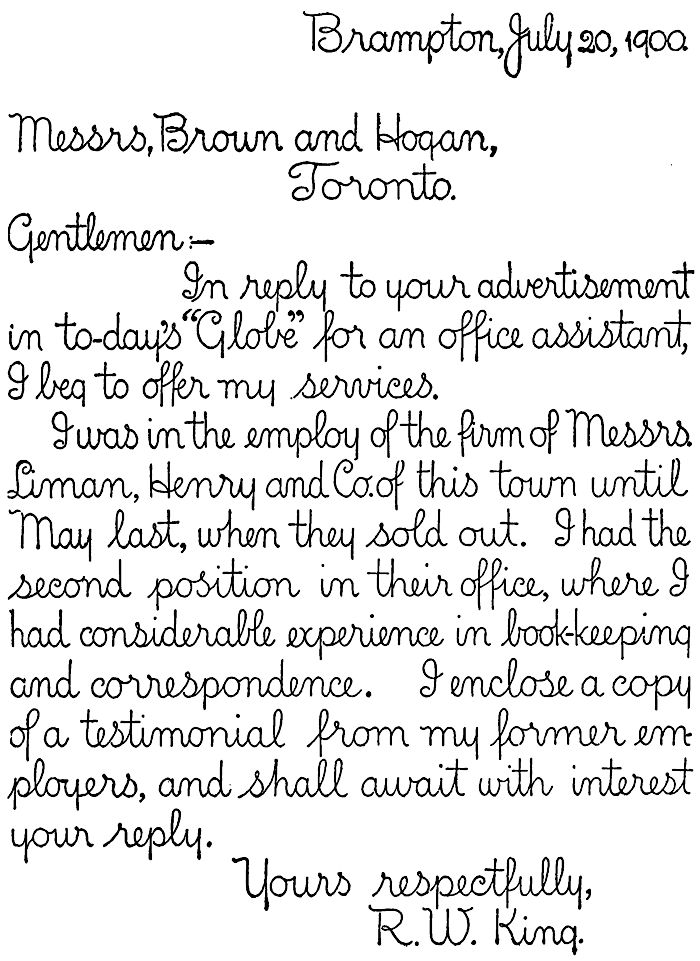 Brampton, July 20, 1900.
Messrs, Brown and Hogan,
Toronto.
Gentlemen:—
In reply to your advertisement
in to-day's "Globe" for an office assistant,
I beg to offer my services.
I was in the employ of the firm of Messrs.
Liman, Henry and Co. of this town until
May last, when they sold out. I had the
second position in their office, where I
had considerable experience in book-keeping
and correspondence. I enclose a copy
of a testimonial from my former em-
ployers, and shall await with interest
your reply.
Yours respectfully,
R. W. King.